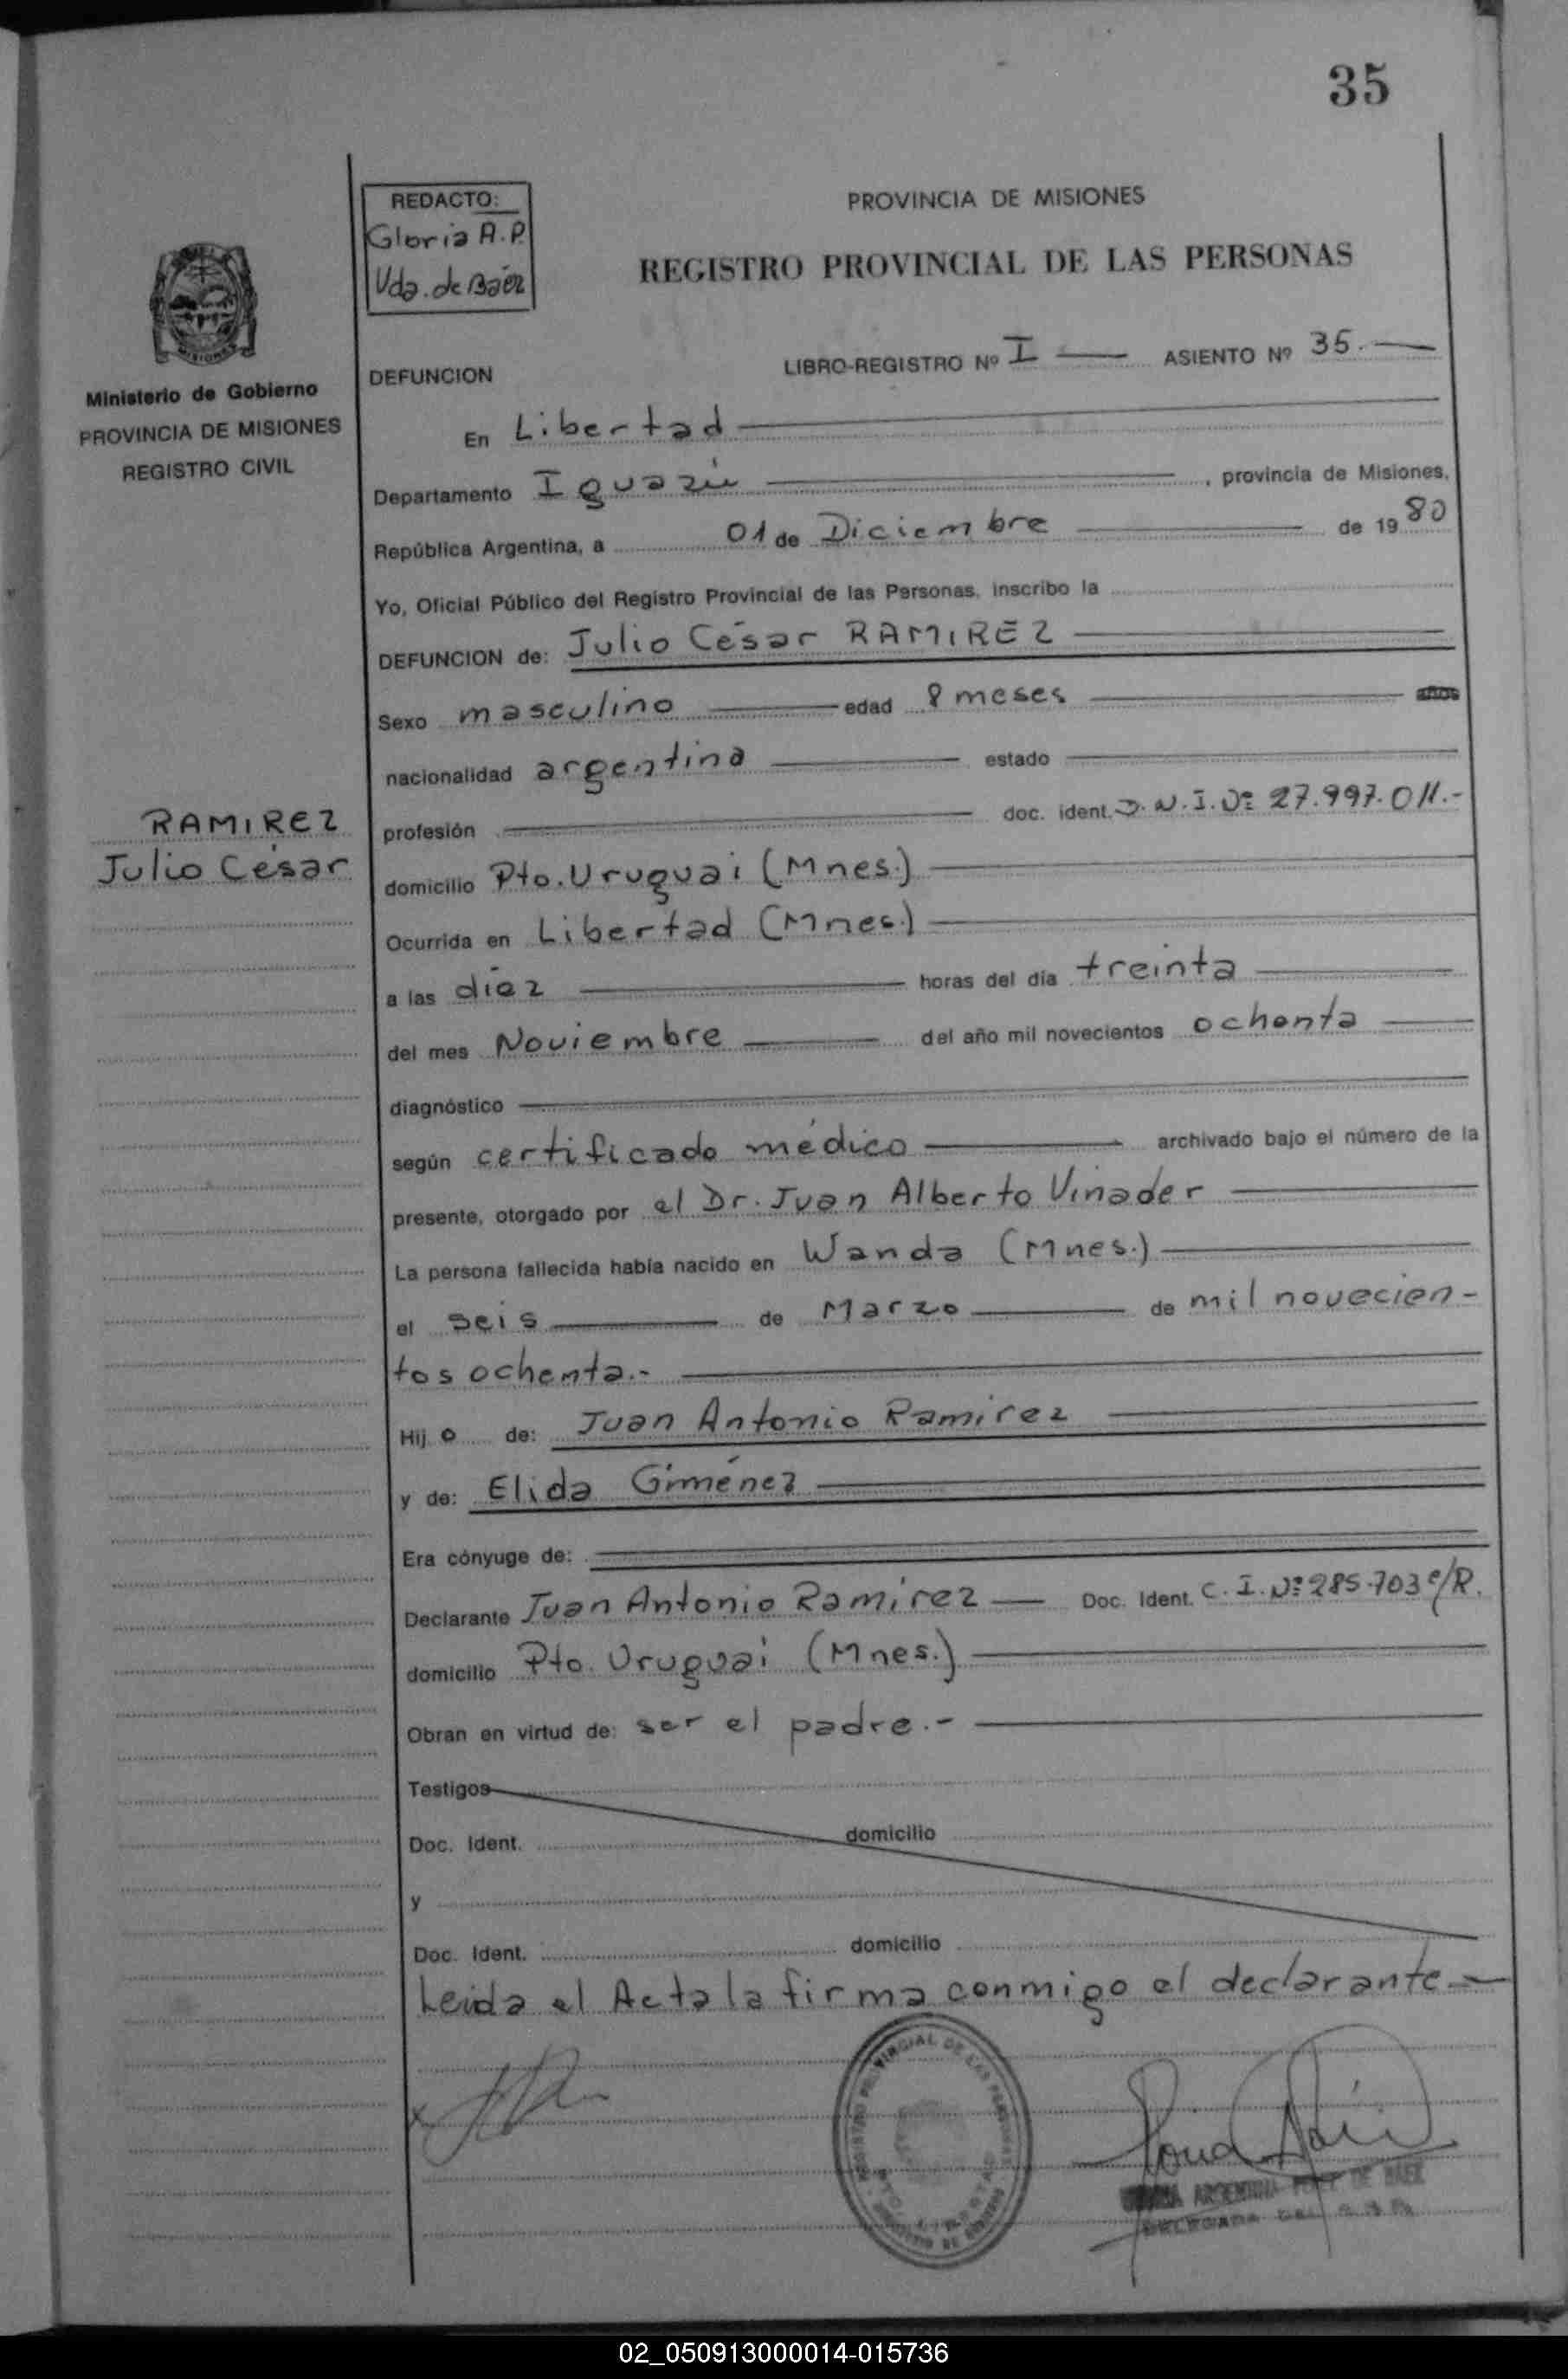 35
REDACTO:
Gloria A.P.
Vda. de Báez
PROVINCIA DE MISIONES
REGISTRO PROVINCIAL DE LAS PERSONAS
MISIONES
Ministerio de Gobierno
PROVINCIA DE MISIONES
REGISTRO CIVIL
DEFUNCION LIBRO-REGISTRO Nº I ASIENTO Nº 35.
En Libertad
Departamento Iguazú, provincia de Misiones,
República Argentina, a 01 de Diciembre de 1980
Yo, Oficial Público del Registro Provincial de las Personas, inscribo la
DEFUNCION de: Julio César RAMIREZ
Sexo masculino edad 8 meses años
nacionalidad argentina estado
profesión doc. ident. D.N.I. Nº 27.997.011.-
RAMIREZ
Julio César
domicilio Pto. Uruguai (Mnes.)
Ocurrida en Libertad (Mnes.)
a las diez horas del día treinta
del mes Noviembre del año mil novecientos ochenta
diagnóstico
según certificado médico archivado bajo el número de la
presente, otorgado por el Dr. Juan Alberto Vinader
La persona fallecida había nacido en Wanda (Mnes.)
el seis de Marzo de mil novecien-
tos ochenta.-
Hijo de: Juan Antonio Ramírez
y de: Elida Giménez
Era cónyuge de:
Declarante Juan Antonio Ramírez Doc. Ident. C.I. Nº 285.703 e/R.
domicilio Pto. Uruguai (Mnes.)
Obran en virtud de: ser el padre.-
Testigos
Doc. Ident. domicilio
y
Doc. Ident. domicilio
Leida el Acta la firma conmigo el declarante.-
REGISTRO PROVINCIAL DE LAS PERSONAS
ARGENTINA PEREZ DE BAEZ
DELEGADA DEL R.P.P.
02_050913000014-015736